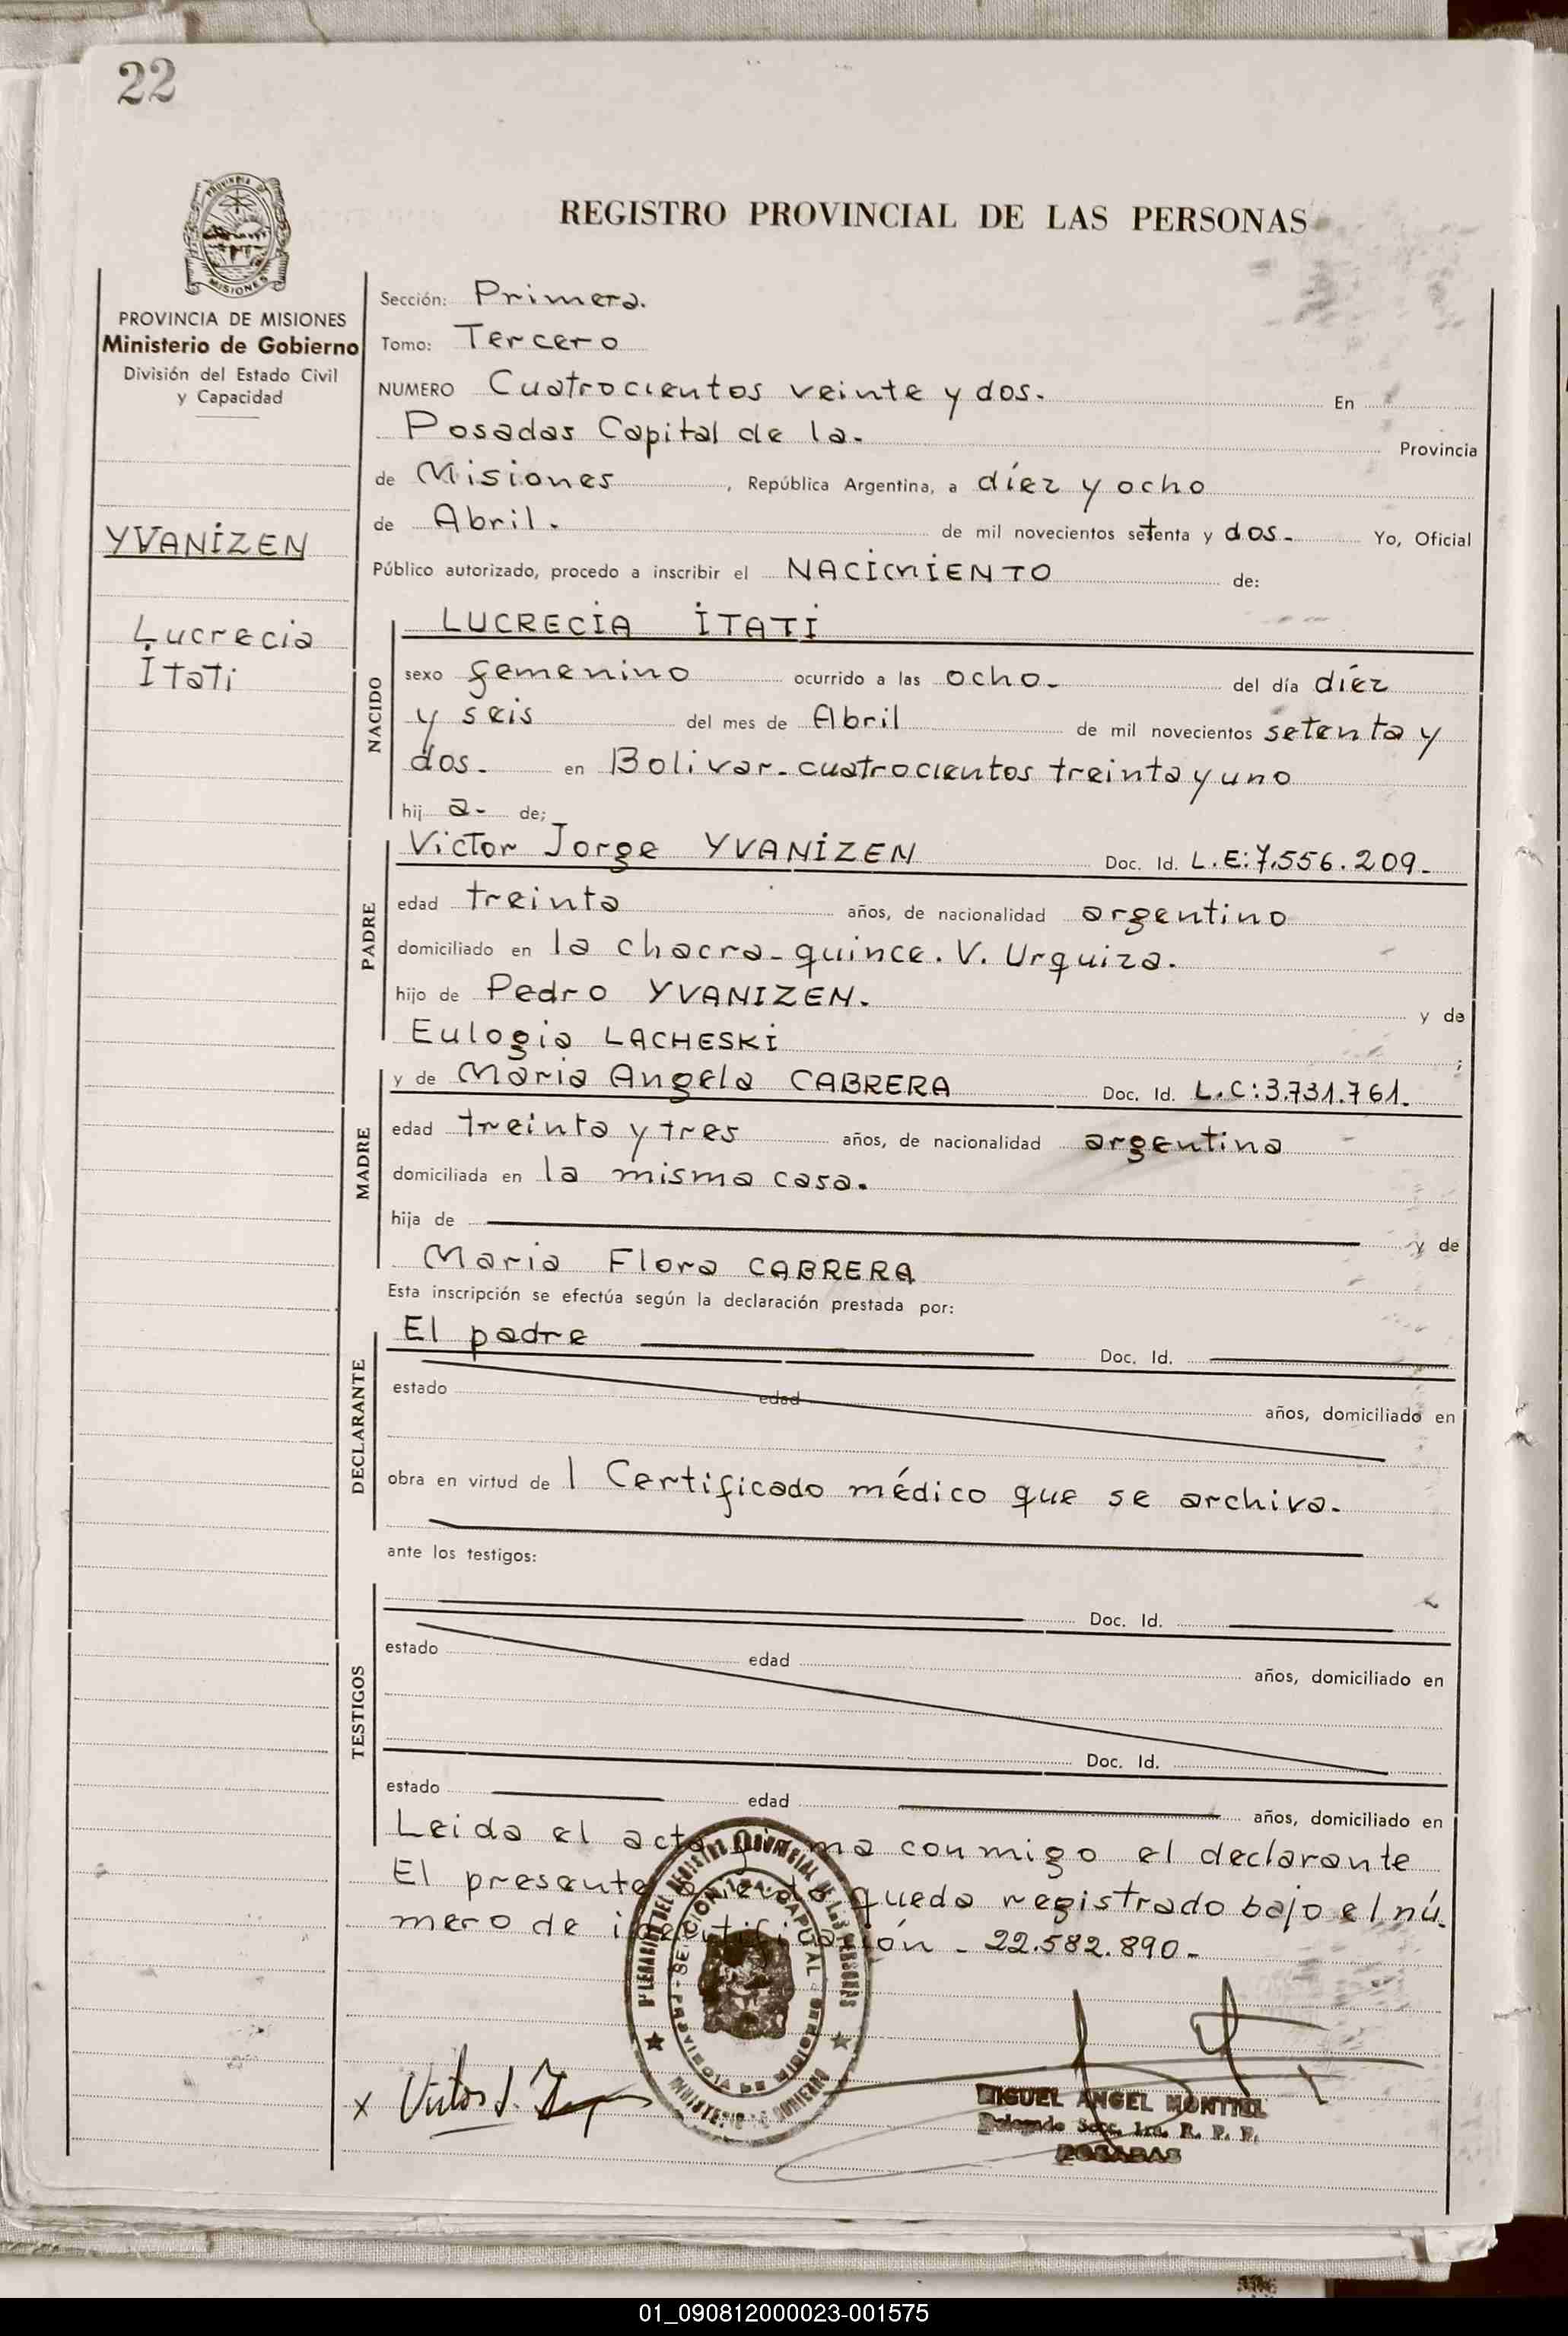 22
PROVINCIA DE
MISIONES
REGISTRO PROVINCIAL DE LAS PERSONAS
PROVINCIA DE MISIONES
Ministerio de Gobierno
División del Estado Civil
y Capacidad
YVANIZEN
Lucrecia
Itati
Sección: Primera.
Tomo: Tercero
NUMERO Cuatrocientos veinte y dos. En
Posadas Capital de la. Provincia
de Misiones, República Argentina, a díez y ocho
de Abril. de mil novecientos setenta y dos. Yo, Oficial
Público autorizado, procedo a inscribir el NACIMIENTO de:
NACIDO
LUCRECIA ITATI
sexo femenino ocurrido a las ocho. del día díez
y seis del mes de Abril de mil novecientos setenta y
dos. en Bolivar. cuatrocientos treinta y uno
hij a. de;
PADRE
Victor Jorge YVANIZEN Doc. Id. L.E:7.556.209.
edad treinta años, de nacionalidad argentino
domiciliado en la chacra quince. V. Urquiza.
hijo de Pedro YVANIZEN. y de
Eulogia LACHESKI ;
MADRE
y de Maria Angela CABRERA Doc. Id. L.C:3.731.761.
edad treinta y tres años, de nacionalidad argentina
domiciliada en la misma casa.
hija de y de
Maria Flora CABRERA
Esta inscripción se efectúa según la declaración prestada por:
DECLARANTE
El padre Doc. Id.
estado edad años, domiciliado en
obra en virtud de l Certificado médico que se archiva.
ante los testigos:
TESTIGOS
Doc. Id.
estado edad años, domiciliado en
Doc. Id.
estado edad años, domiciliado en
Leida el acta firma conmigo el declarante
El presente queda registrado bajo el nú.
mero de identificación - 22.582.890.
DEL REGISTRO PROVINCIAL DE LAS PERSONAS
SECCION 1ra. CAPITAL
PROVINCIA DE MISIONES
MINISTERIO DE GOBIERNO
x Victor J.
MIGUEL ANGEL MONTIEL
Delegado Secc. 1ra. R. P. P.
POSADAS
01_090812000023-001575